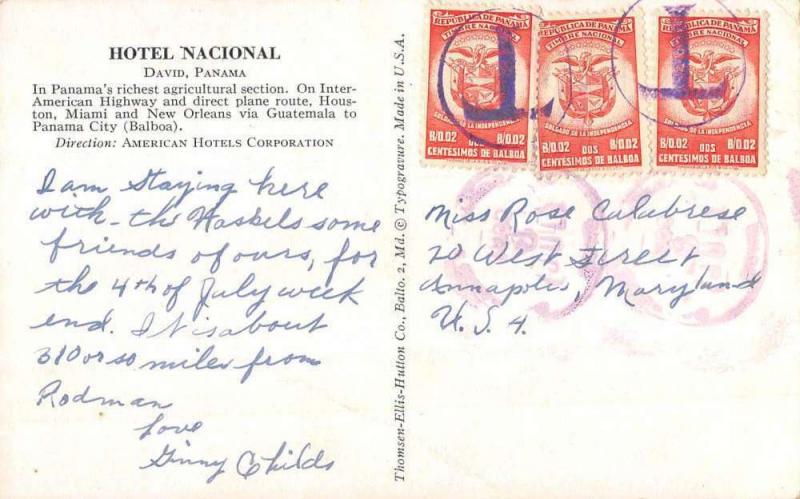 HOTEL NACIONAL
DAVID, PANAMA
In Panama's richest agricultural section. On Inter-
American Highway and direct plane route, Hous-
ton, Miami and New Orleans via Guatemala to
Panama City (Balboa).
Direction: AMERICAN HOTELS CORPORATION
I am staying here
with the Haskels some
friends of ours, for
the 4th of July week
end. It is about
310 or so miles from
Rodman
Love
Ginny Childs
Thomsen-Ellis-Hutton Co., Balto. 2, Md. © Typogravure. Made in U.S.A.
REPUBLICA DE PANAMA
TIMBRE NACIONAL
SOLDADO DE LA INDEPENDENCIA
B/0.02 DOS B/0.02
CENTESIMOS DE BALBOA
REPUBLICA DE PANAMA
TIMBRE NACIONAL
SOLDADO DE LA INDEPENDENCIA
B/0.02 DOS B/0.02
CENTESIMOS DE BALBOA
REPUBLICA DE PANAMA
TIMBRE NACIONAL
SOLDADO DE LA INDEPENDENCIA
B/0.02 DOS B/0.02
CENTESIMOS DE BALBOA
T
T
Miss Rose Calabrese
20 West Street
Annapolis, Maryland
U.S.A.